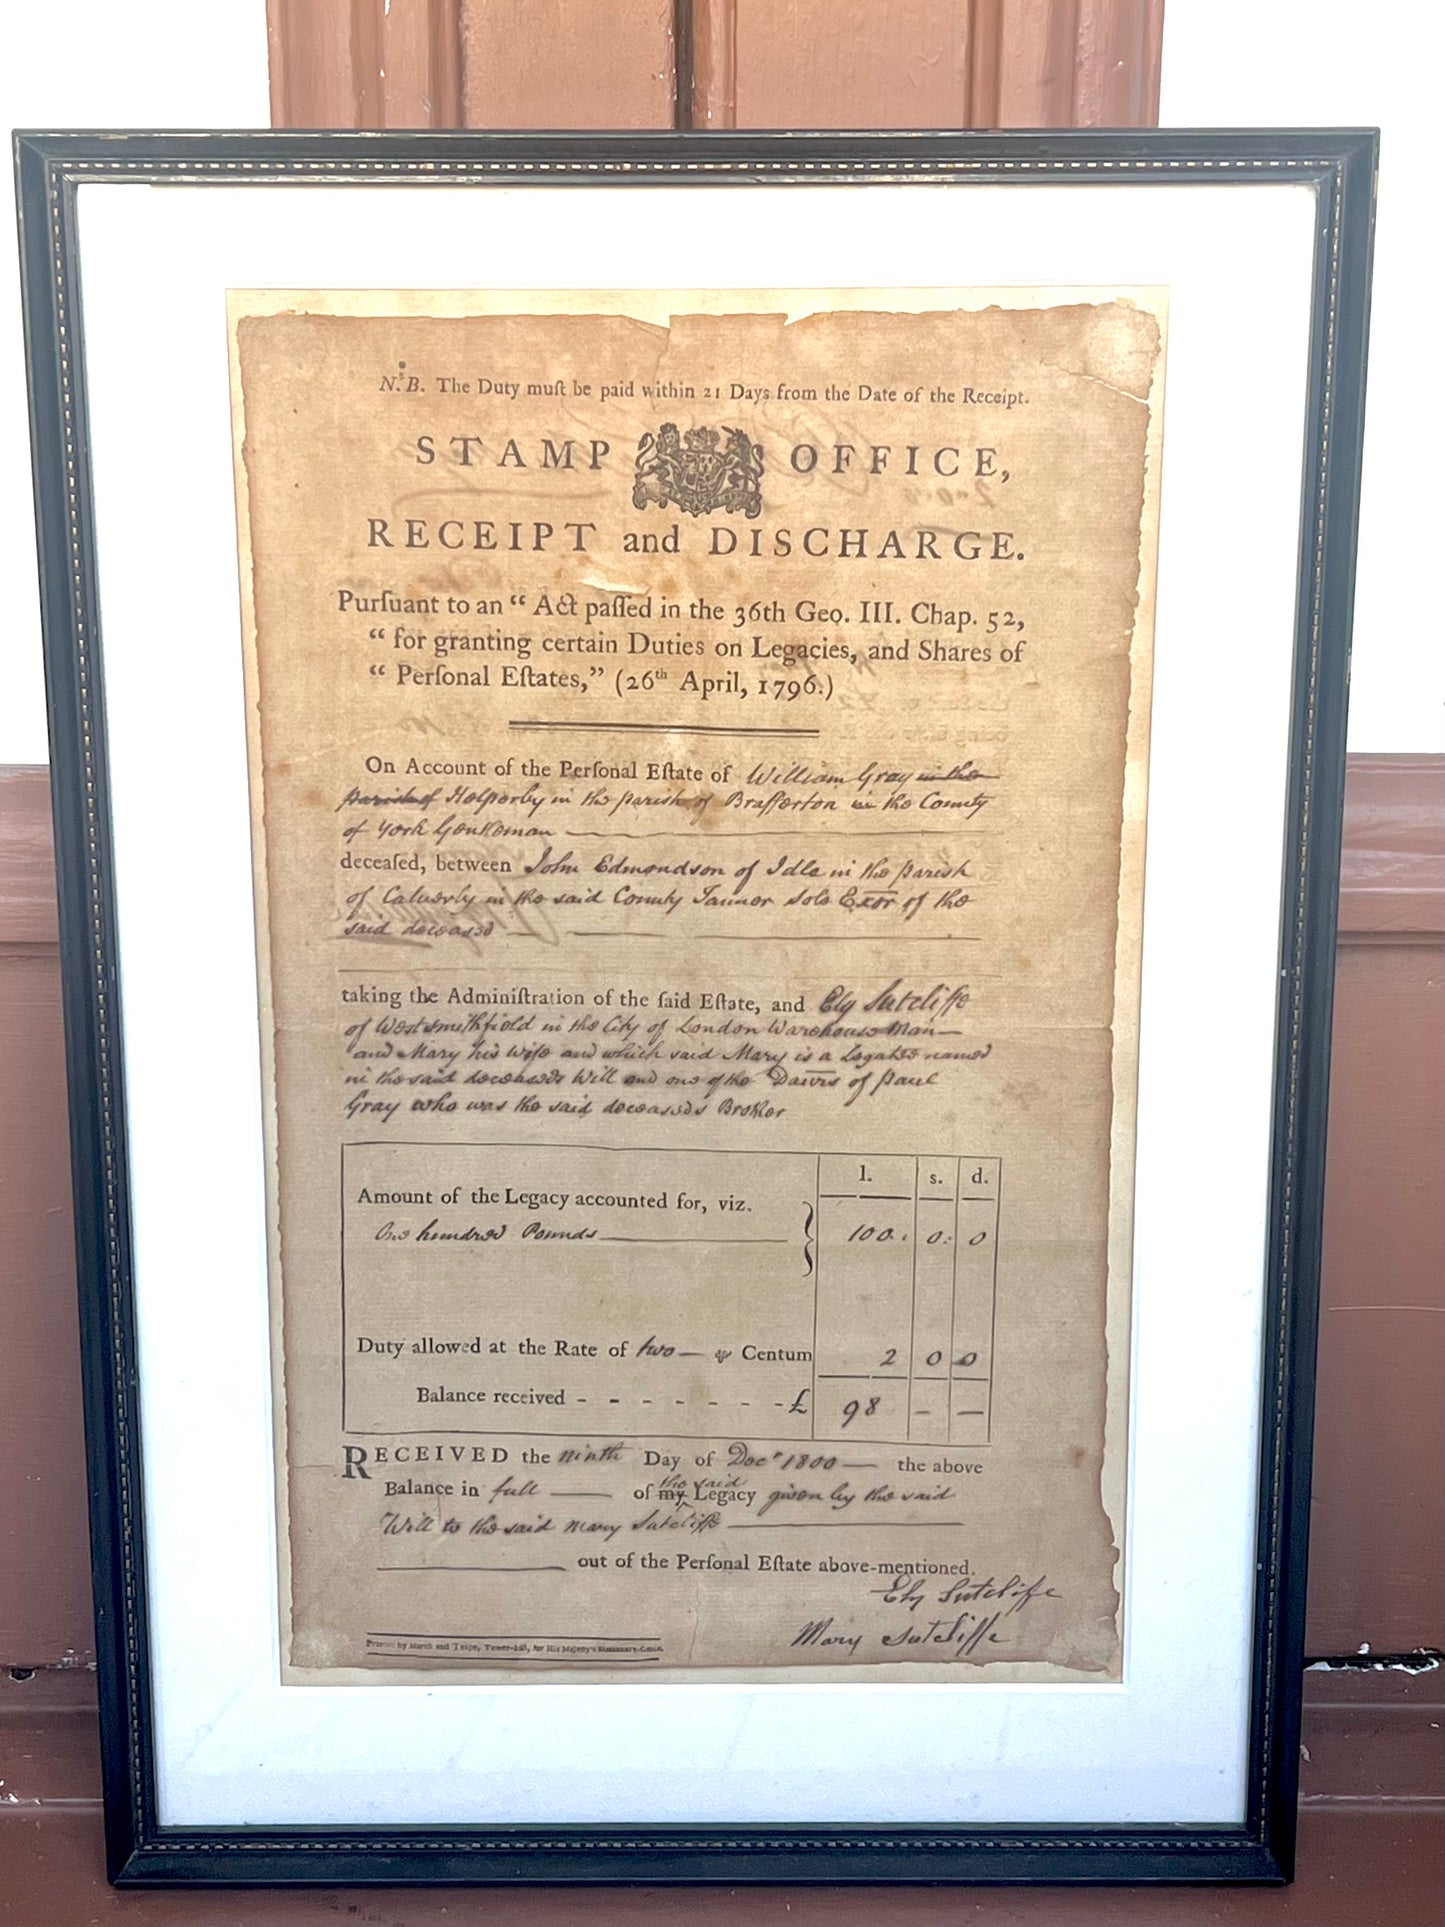 N.B. The Duty muſt be paid within 21 Days from the Date of the Receipt.
STAMP OFFICE,
RECEIPT and DISCHARGE.
Purſuant to an “ Act paſſed in the 36th Geo. III. Chap. 52,
“ for granting certain Duties on Legacies, and Shares of
“ Perſonal Eſtates,” (26th April, 1796.)
On Account of the Perſonal Eſtate of William Gray in the
parish of Helperby in the parish of Brafferton in the County
of York Gentleman
deceaſed, between John Edmondson of Idle in the parish
of Calverly in the said County Tanner Sole Exor of the
said deceased
taking the Adminiſtration of the ſaid Eſtate, and Ely Sutcliffe
of West smithfield in the City of London Warehouse Man
and Mary his Wife and which said Mary is a Legatee named
in the said deceaseds Will and one of the Dau̅rs of Paul
Gray who was the said deceased's Brother
l. s. d.
Amount of the Legacy accounted for, viz.
One hundred Pounds 100 : 0 : 0
Duty allowed at the Rate of two ⅌ Centum 2 0 0
Balance received - - - - - - - £ 98 – –
RECEIVED the ninth Day of Decr 1800 the above
the said
Balance in full of my Legacy given by the said
Will to the said Mary Sutcliffe
out of the Perſonal Eſtate above-mentioned.
Ely Sutcliffe
Mary Sutcliffe
Printed by March and Teape, Tower-hill, for His Majesty's Stationary-Office.